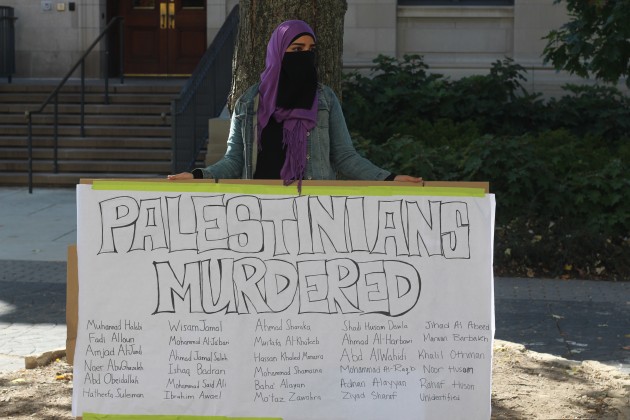 PALESTINIANS
MURDERED
Muhammad Halabi
Fadi Alloun
Amjad
Abd Obeidallah
Hatheefa Suleiman
Wisam Jamal
Mohammad
Ahmad Jamal Salah
Ishaq Badran
Mohammad Said Ali
Ibrahim Awad
Ahmad Sharaka
Hassan Khalid
Mohammad Shamasne
Baha' Alayan
Mu'taz Zawahra
Shadi Hussam Dawla
Ahmad Al-Harbawi
Abd AlWahidi
Mohammad
Adnan Alayyan
Ziyad Sharaf
Jihad Al Abeed
Marwan Barbakh
Khalil Othman
Noor Hassan
Rahaf Hassan
Unidentified